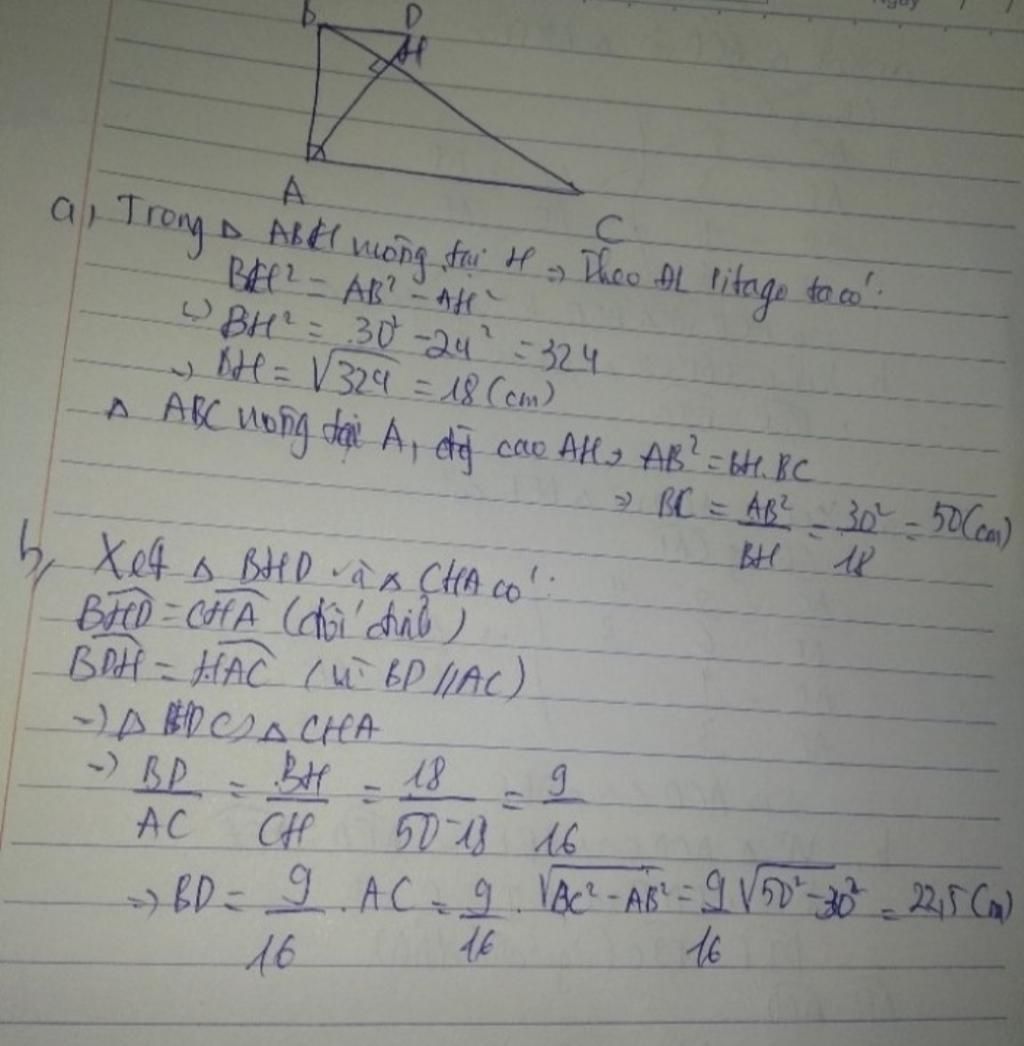 Ngày
B D
H
A
C
a, Trong Δ ABH vuông tại H => Theo ĐL Pitago ta có:
BH² = AB² - AH²
=> BH² = 30² - 24² = 324
=> BH = √324 = 18 (cm)
Δ ABC vuông tại A, đg cao AH => AB² = BH.BC
=> BC = AB²/BH = 30²/18 = 50 (cm)
b, Xét Δ BHD và Δ CHA có:
BHD = CHA (đối đỉnh)
BDH = HAC (vì BD // AC)
=> Δ BHD ∽ Δ CHA
=> BD/AC = BH/CH = 18/50-18 = 9/16
=> BD = 9/16 . AC = 9/16 . √BC² - AB² = 9/16 √50² - 30² = 22,5 (cm)